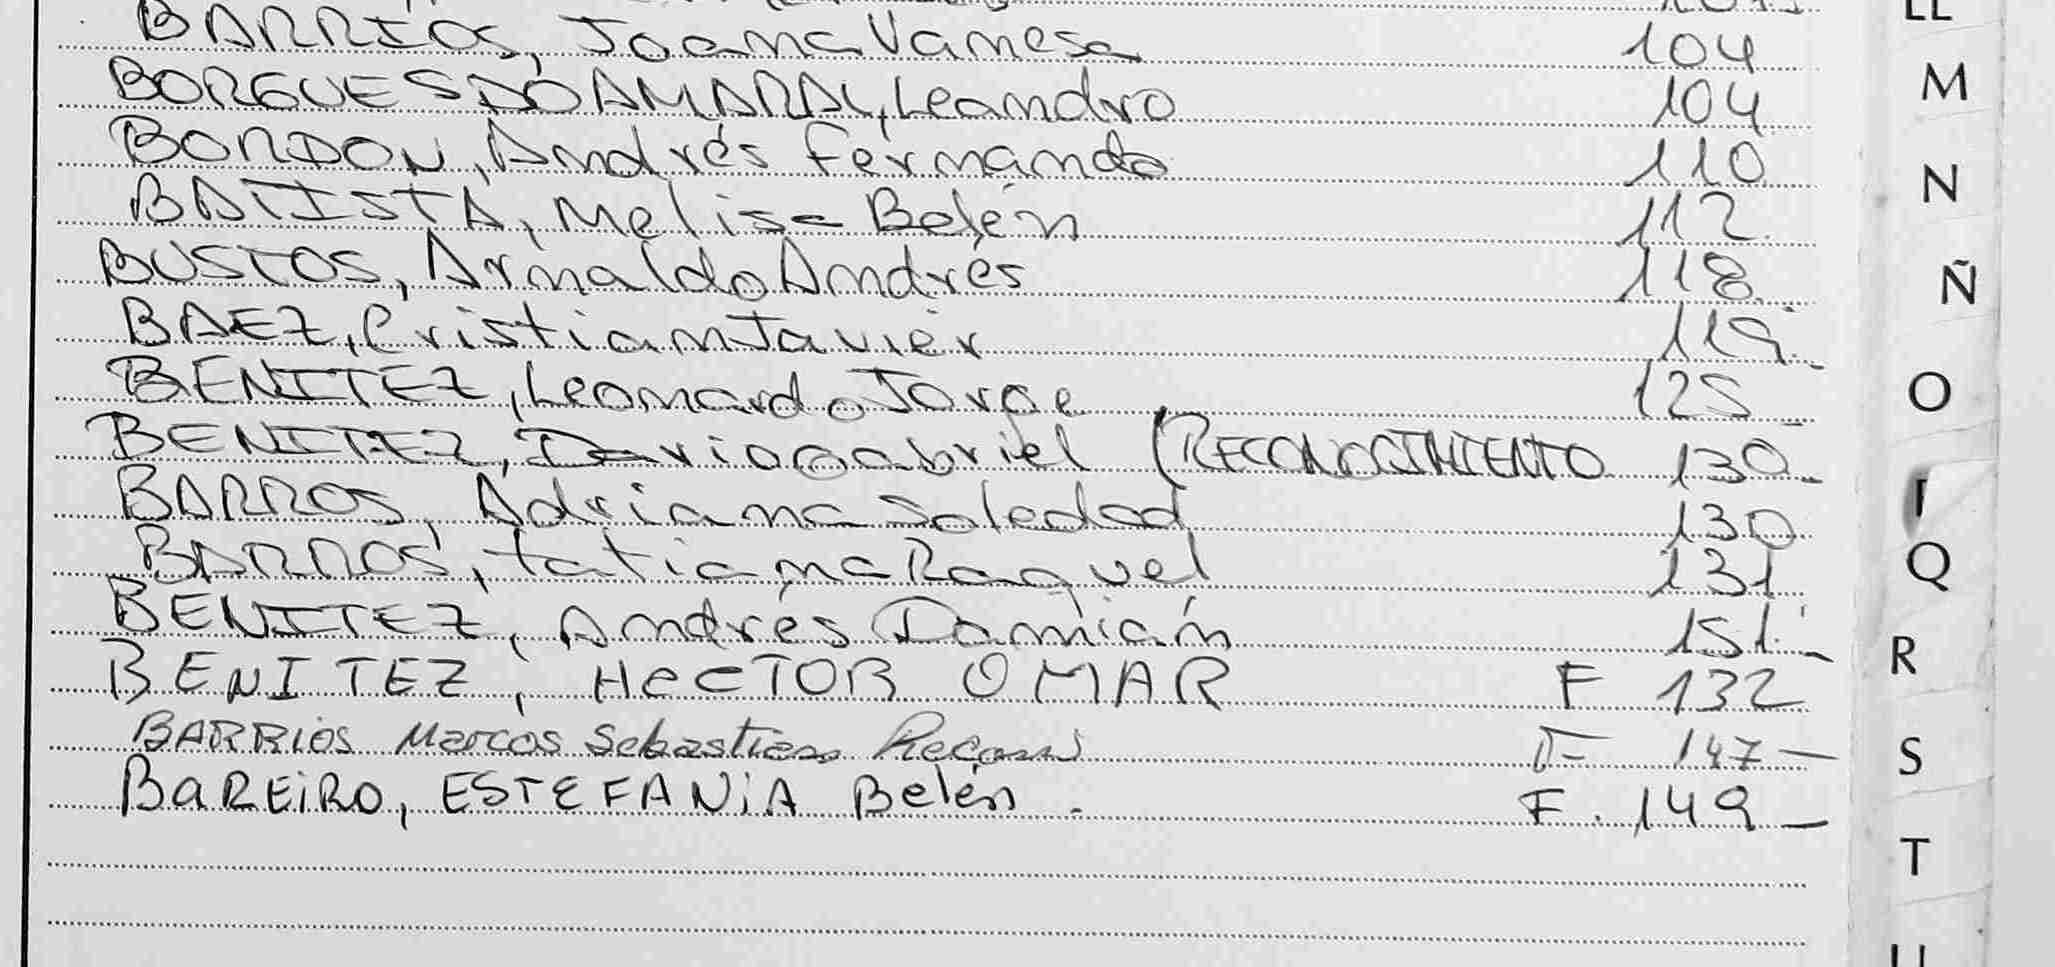 BARRIOS, Joana Vanesa 104
BORGUES DO AMARAL, Leandro 104
BORDON, Andrés Fernando 110
BATISTA, Melisa Belén 112
BUSTOS, Arnaldo Andrés 118
BAEZ, Cristian Javier 119.-
BENITEZ, Leonardo Jorge 125
BENITEZ, Dario Gabriel (RECONOCIMIENTO 130.-
BARROS, Adriana Soledad 130
BARROS, Tatiana Raquel 131
BENITEZ, Andrés Damián 151.-
BENITEZ, HeCTOR OMAR F 132
BARRIOS Marcos Sebastian F 147-
BaREiRO, ESTEFANiA Belén. F. 149-
LL
M
N
Ñ
O
Q
R
S
T
U